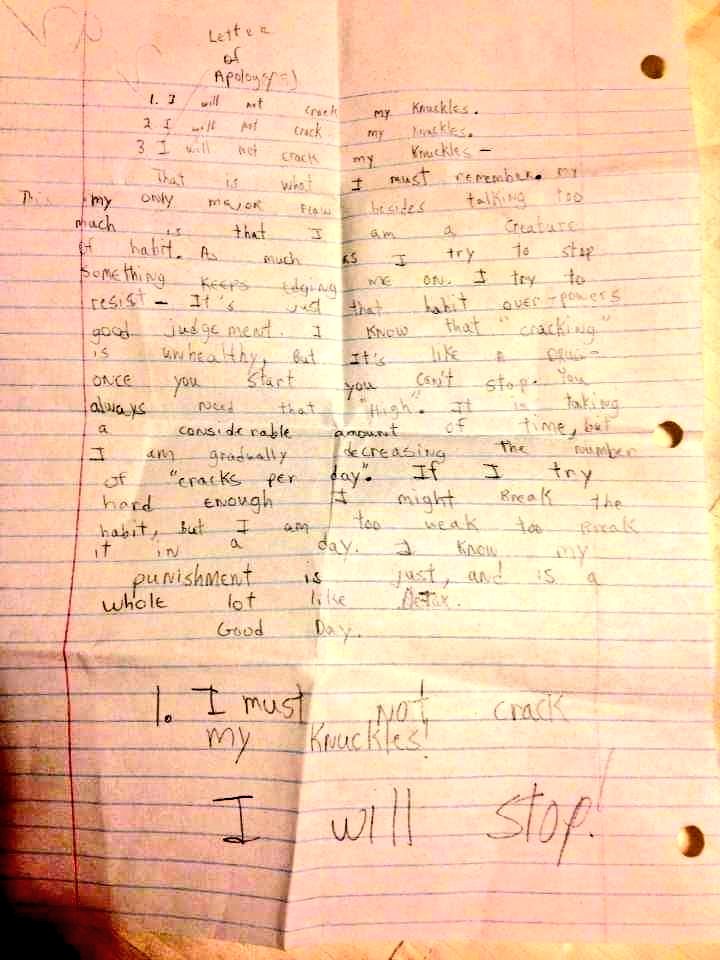 Letter
of
Apology =)
1. I will not crack my Knuckles.
2 I will not crack my Knuckles.
3 I will not crack my Knuckles -
That is what I must remember. my
This my only major flaw besides talking too
much is that I am a Creature
of habit. As much as I try to stop
something keeps edging me on. I try to
resist - It's just that habit over-powers
good judgement. I know that "cracking"
is unhealthy, But It's like a
once you start you can't stop. You
always need that "High". It is taking
a considerable amount of time, but
I am gradually decreasing the number
of "cracks per day". If I try
hard enough I might Break the
habit, But I am too weak too Break
it in a day. I know my
punishment is just, and is a
whole lot like Detox.
Good Day.
1. I must not crack
my Knuckles!
I will stop!